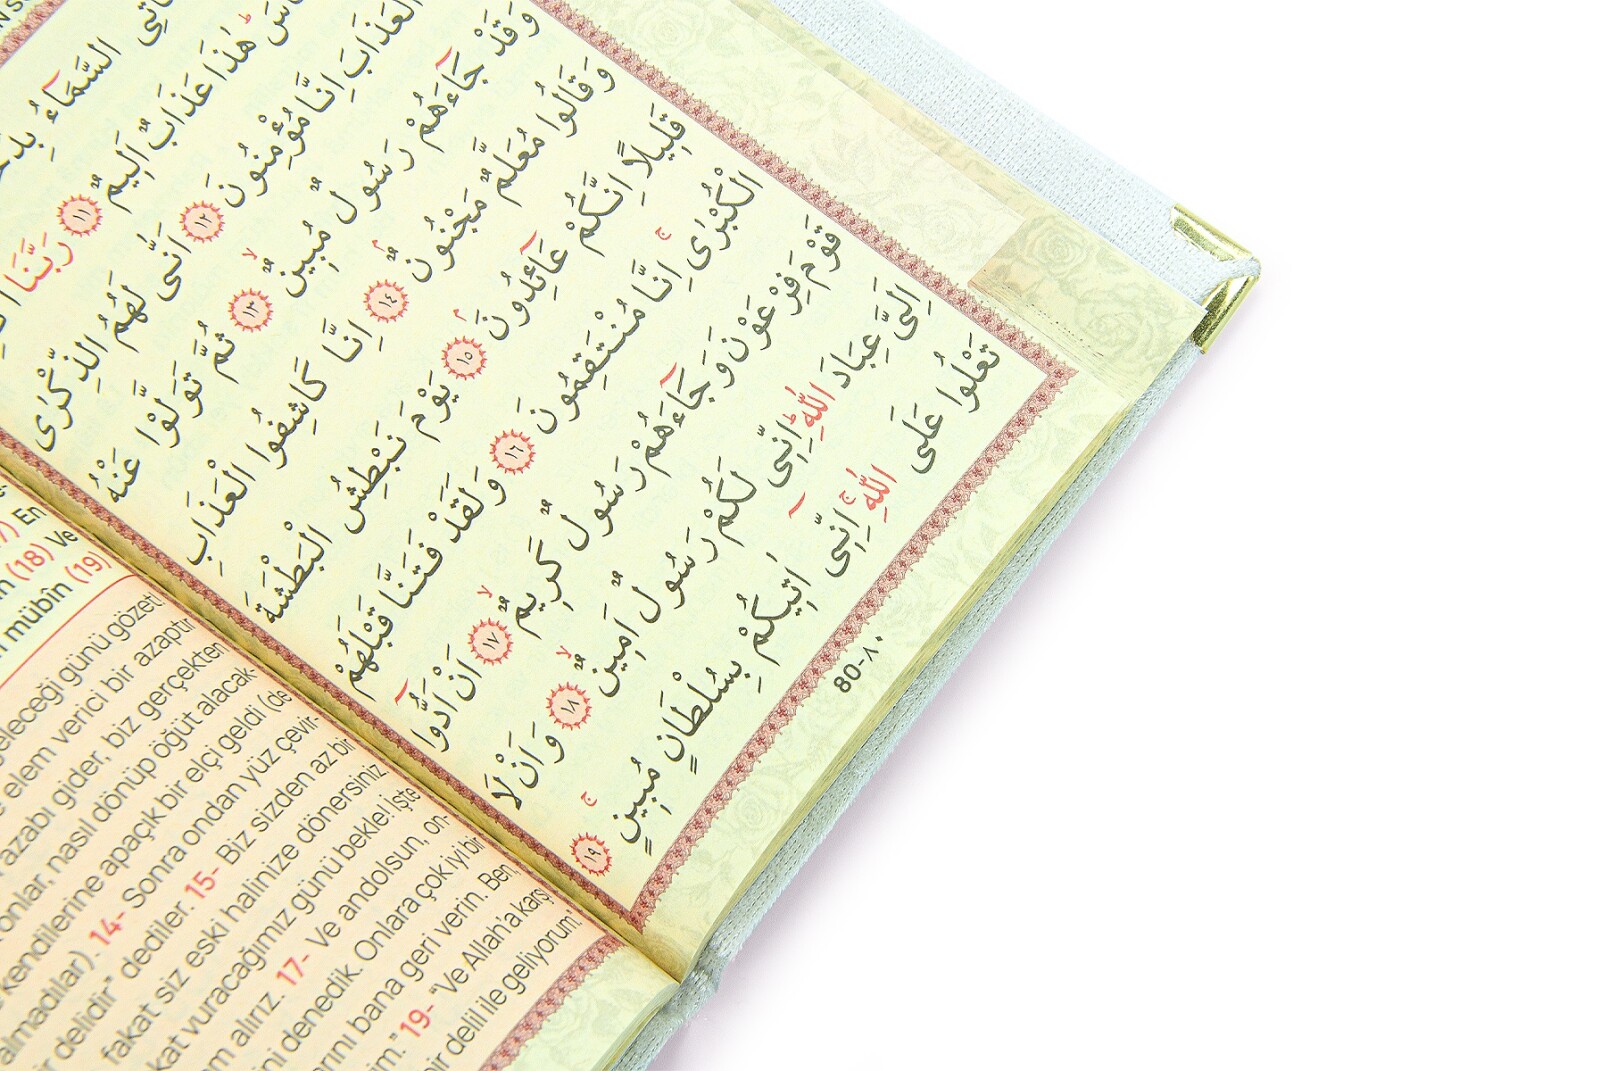 السَّمَٓاءُ
هٰذَا عَذَابٌ اَلِيمٌ ﴿١١﴾ رَبَّنَا
الْعَذَابَ اِنَّا مُؤْمِنُونَ ﴿١٢﴾ اَنّٰى لَهُمُ الذِّكْرٰى
وَقَدْ جَٓاءَهُمْ رَسُولٌ مُبِينٌ ﴿١٣﴾ ثُمَّ تَوَلَّوْا عَنْهُ
وَقَالُوا مُعَلَّمٌ مَجْنُونٌ ﴿١٤﴾ اِنَّا كَاشِفُوا الْعَذَابِ
قَلِيلًا اِنَّكُمْ عَٓائِدُونَ ﴿١٥﴾ يَوْمَ نَبْطِشُ الْبَطْشَةَ
الْكُبْرٰى اِنَّا مُنْتَقِمُونَ ﴿١٦﴾ وَلَقَدْ فَتَنَّا قَبْلَهُمْ
قَوْمَ فِرْعَوْنَ وَجَٓاءَهُمْ رَسُولٌ كَرِيمٌ ﴿١٧﴾ اَنْ اَدُّٓوا
اِلَيَّ عِبَادَ اللّٰهِ اِنِّى لَكُمْ رَسُولٌ اَمِينٌ ﴿١٨﴾ وَاَنْ لَا
تَعْلُوا عَلَى اللّٰهِ اِنِّٓى اٰتِيكُمْ بِسُلْطَانٍ مُبِينٍ ﴿١٩﴾
80-٨٠
En
(18) Ve
mübîn (19)
geleceği günü gözetl
elem verici bir azaptır
azabı gider, biz gerçekten
onlar, nasıl dönüp öğüt alacak-
kendilerine apaçık bir elçi geldi (de
almadılar). 14- Sonra ondan yüz çevir-
delidir” dediler. 15- Biz sizden az bir
fakat siz eski halinize dönersiniz
vuracağımız günü bekle! İşte
alırız. 17- Ve andolsun, on-
denedik. Onlara çok iyi bir
bana geri verin. Ben,
19- “Ve Allah’a karşı
delil ile geliyorum”